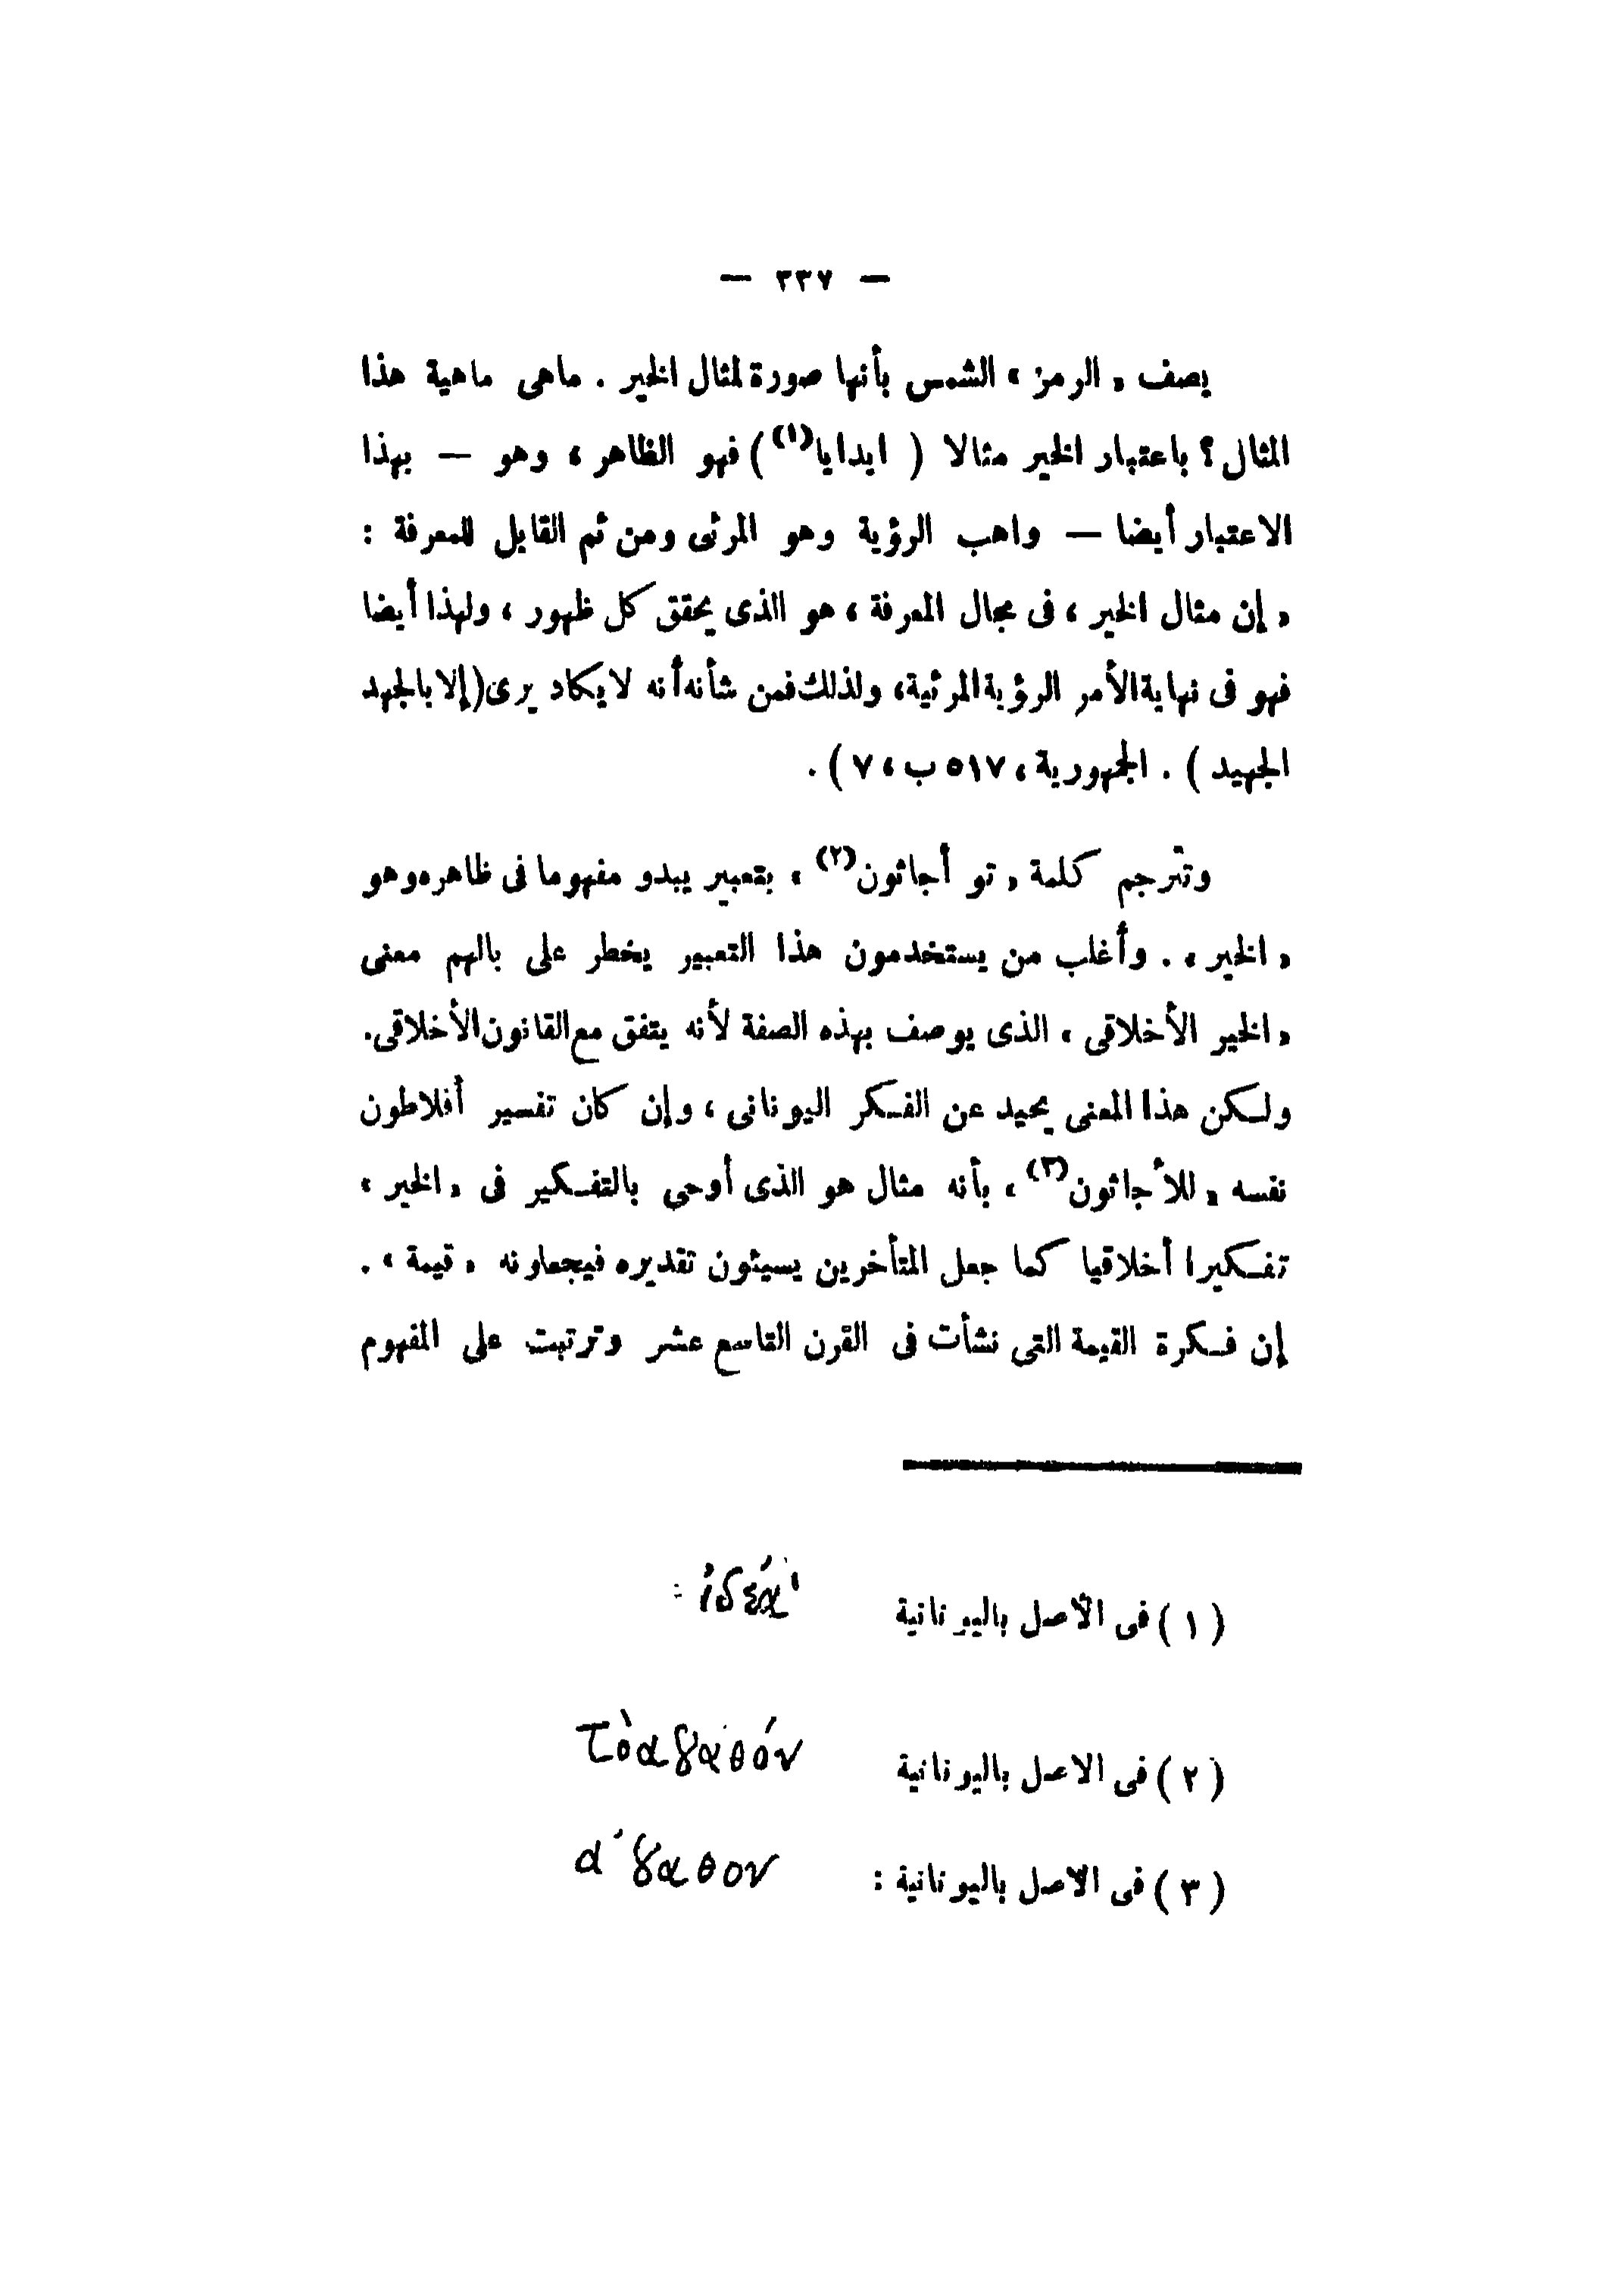 — ٣٣٧ —
يصف « الرمز » الشمس بأنها صورة لمثال الخير . ماهى ماهية هذا
المثال ؟ باعتبار الخير مثالا ( ايدايا(١) ) فهو الظاهر ، وهو — بهذا
الاعتبار أيضا — واهب الرؤية وهو المرئى ومن ثم القابل للمعرفة :
« إن مثال الخير ، فى مجال المعرفة ، هو الذى يحقق كل ظهور ، ولهذا أيضا
فهو فى نهاية الأمر الرؤية المرئية ، ولذلك فمن شأنه أنه لا يكاد يرى (إلا بالجهد
الجهيد ) . الجمهورية ، ٥١٧ ب ، ٧ ) .
وتترجم كلمة « تو أجاثون(٢) » بتعبير يبدو مفهوما فى ظاهره وهو
« الخير » . وأغلب من يستخدمون هذا التعبير يخطر على بالهم معنى
« الخير الأخلاقى » الذى يوصف بهذه الصفة لأنه يتفق مع القانون الأخلاقى .
ولكن هذا المعنى يحيد عن الفكر اليونانى ، وإن كان تفسير أفلاطون
نفسه « للأجاثون(٣) » بأنه مثال هو الذى أوحى بالتفكير فى « الخير »
تفكيرا أخلاقيا كما جعل المتأخرين يسيئون تقديره فيجعلونه « قيمة » .
إن فكرة القيمة التى نشأت فى القرن التاسع عشر وترتبت على المفهوم
( ١ ) فى الأصل باليونانية ἰδέα :
( ٢ ) فى الاصل باليونانية τὸ αγαθόν
( ٣ ) فى الاصل باليونانية : ἀγαθον